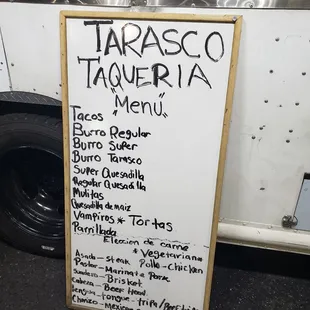 TARASCO
TAQUERIA
"Menu"
Tacos
Burro Regular
Burro Super
Burro Tarasco
Super Quesadilla
Regular Quesadilla
Mulitas
Quesadilla de maiz
Vampiros * Tortas
Parrillada
Eleccion de carne
* Vegetariana
Asada - steak Pollo - Chicken
Pastor - Marinate Pork
Suadero - Brisket
Cabeza - Beef Head
Lengua - tongue - tripa /
Chorizo - Mexican